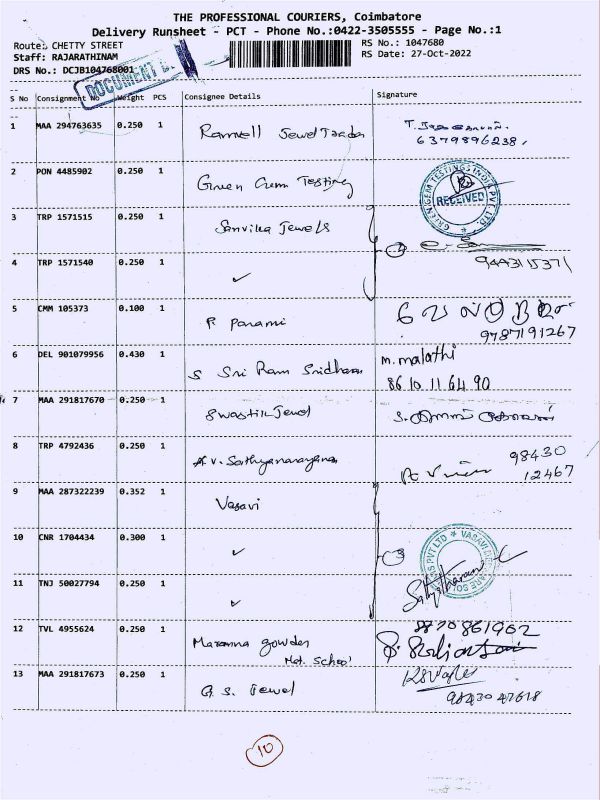 THE PROFESSIONAL COURIERS, Coimbatore
Delivery Runsheet - PCT - Phone No.:0422-3505555 - Page No.:1
Route: CHETTY STREET
RS No.: 1047680
Staff: RAJARATHINAM
RS Date: 27-Oct-2022
DRS No.: DCJB104768001
DOCUMENT
S No Consignment No Weight PCS Consignee Details Signature
1 MAA 294763635 0.250 1 Jewel
6379896238,
2 PON 4485902 0.250 1 Green Gem Testing
GREEN GEM TESTINGS INDIA PVT LTD. RECEIVED
3 TRP 1571515 0.250 1 Sanvika Jewels
2
4 TRP 1571540 0.250 1 ✓
9443115371
5 CMM 105373 0.100 1 P Panami
9787191267
6 DEL 901079956 0.430 1 S Sri Ram Sridharan m. malathi
86 10 11 64 90
7 MAA 291817670 0.250 1 Swastik Jewel
8 TRP 4792436 0.250 1 A.V. Sathyanarayana
98430
12467
9 MAA 287322239 0.352 1 Vasavi
10 CNR 1704434 0.300 1 ✓
3
11 TNJ 50027794 0.250 1 ✓
12 TVL 4955624 0.250 1 gowder
8870861902
Mat. School
13 MAA 291817673 0.250 1 G. S. Jewel
98430 47618
10